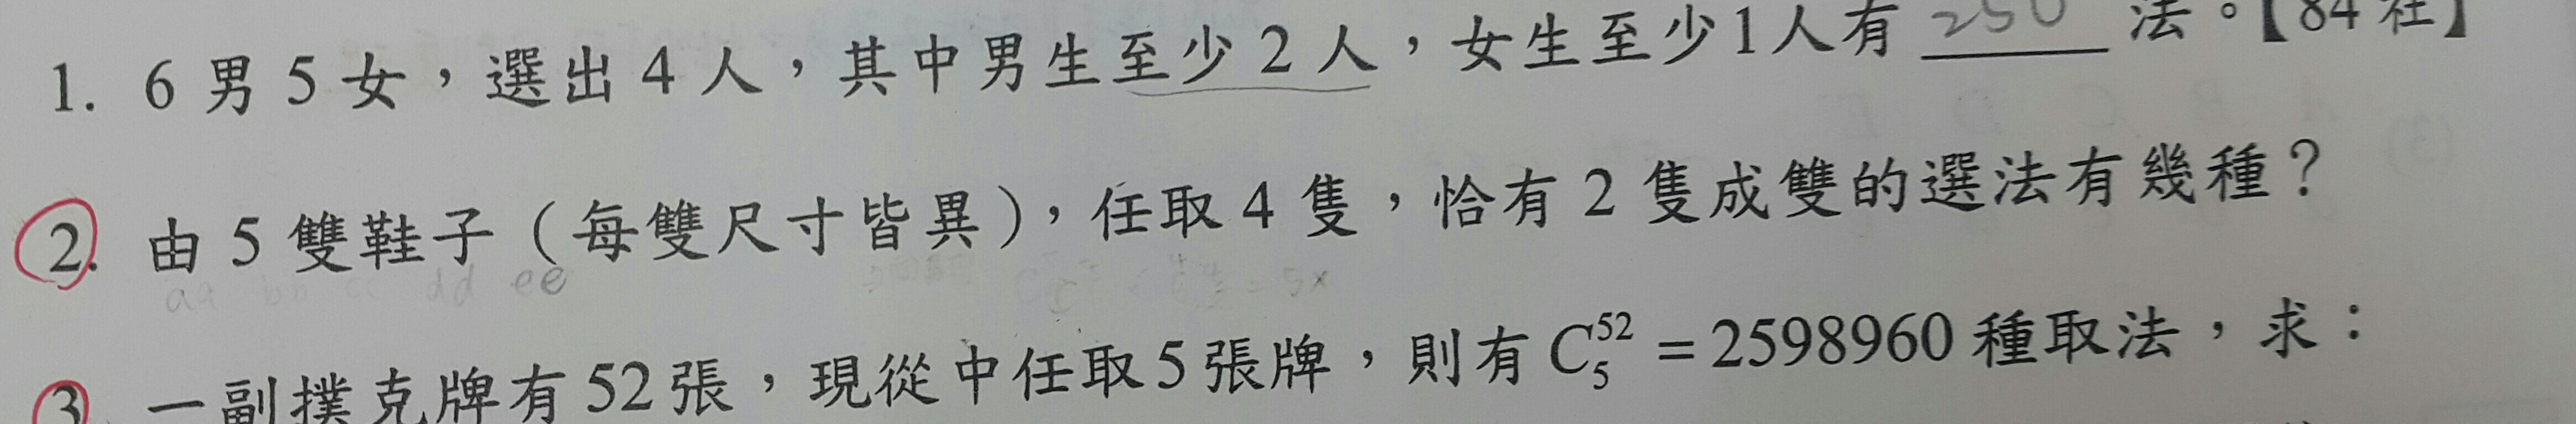 1. 6 男 5 女，選出 4 人，其中男生至少 2 人，女生至少1人有 250 法。【84 社】
2. 由 5 雙鞋子（每雙尺寸皆異），任取 4 隻，恰有 2 隻成雙的選法有幾種？
aa bb cc dd ee
3. 一副撲克牌有52張，現從中任取5張牌，則有 C₅⁵² = 2598960 種取法，求：